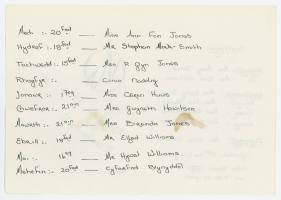 Medi :. 20fed — Mrs Ann Fôn Jones
Hydref :. 18fed — Mr Stephen Mark Smith
Tachwedd :. 15fed — Mrs R Gyn Jones
Rhagfyr :. — Cinio Nadolig
Ionawr :. 17eg — Miss Huws
Chwefror :. 21ain — Mrs Gwyneth
Mawrth :. 21ain — Mrs Brenda Jones
Ebrill :. 18fed — Mr Elfed Williams
Mai :. 16eg — Mr Hywel Williams
Mehefin :. 20fed — Cyfarfod Blynyddol